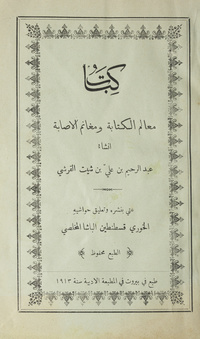 كتاب
معالم الكتابة ومغانم الاصابة
انشاء
عبد الرحيم بن علي بن شيث القرشي
عني بنشره وتعليق حواشيه
الخوري قسطنطين الباشا المخلصي
الطبع محفوظ
طبع في بيروت في المطبعة الادبية سنة ١٩١٣